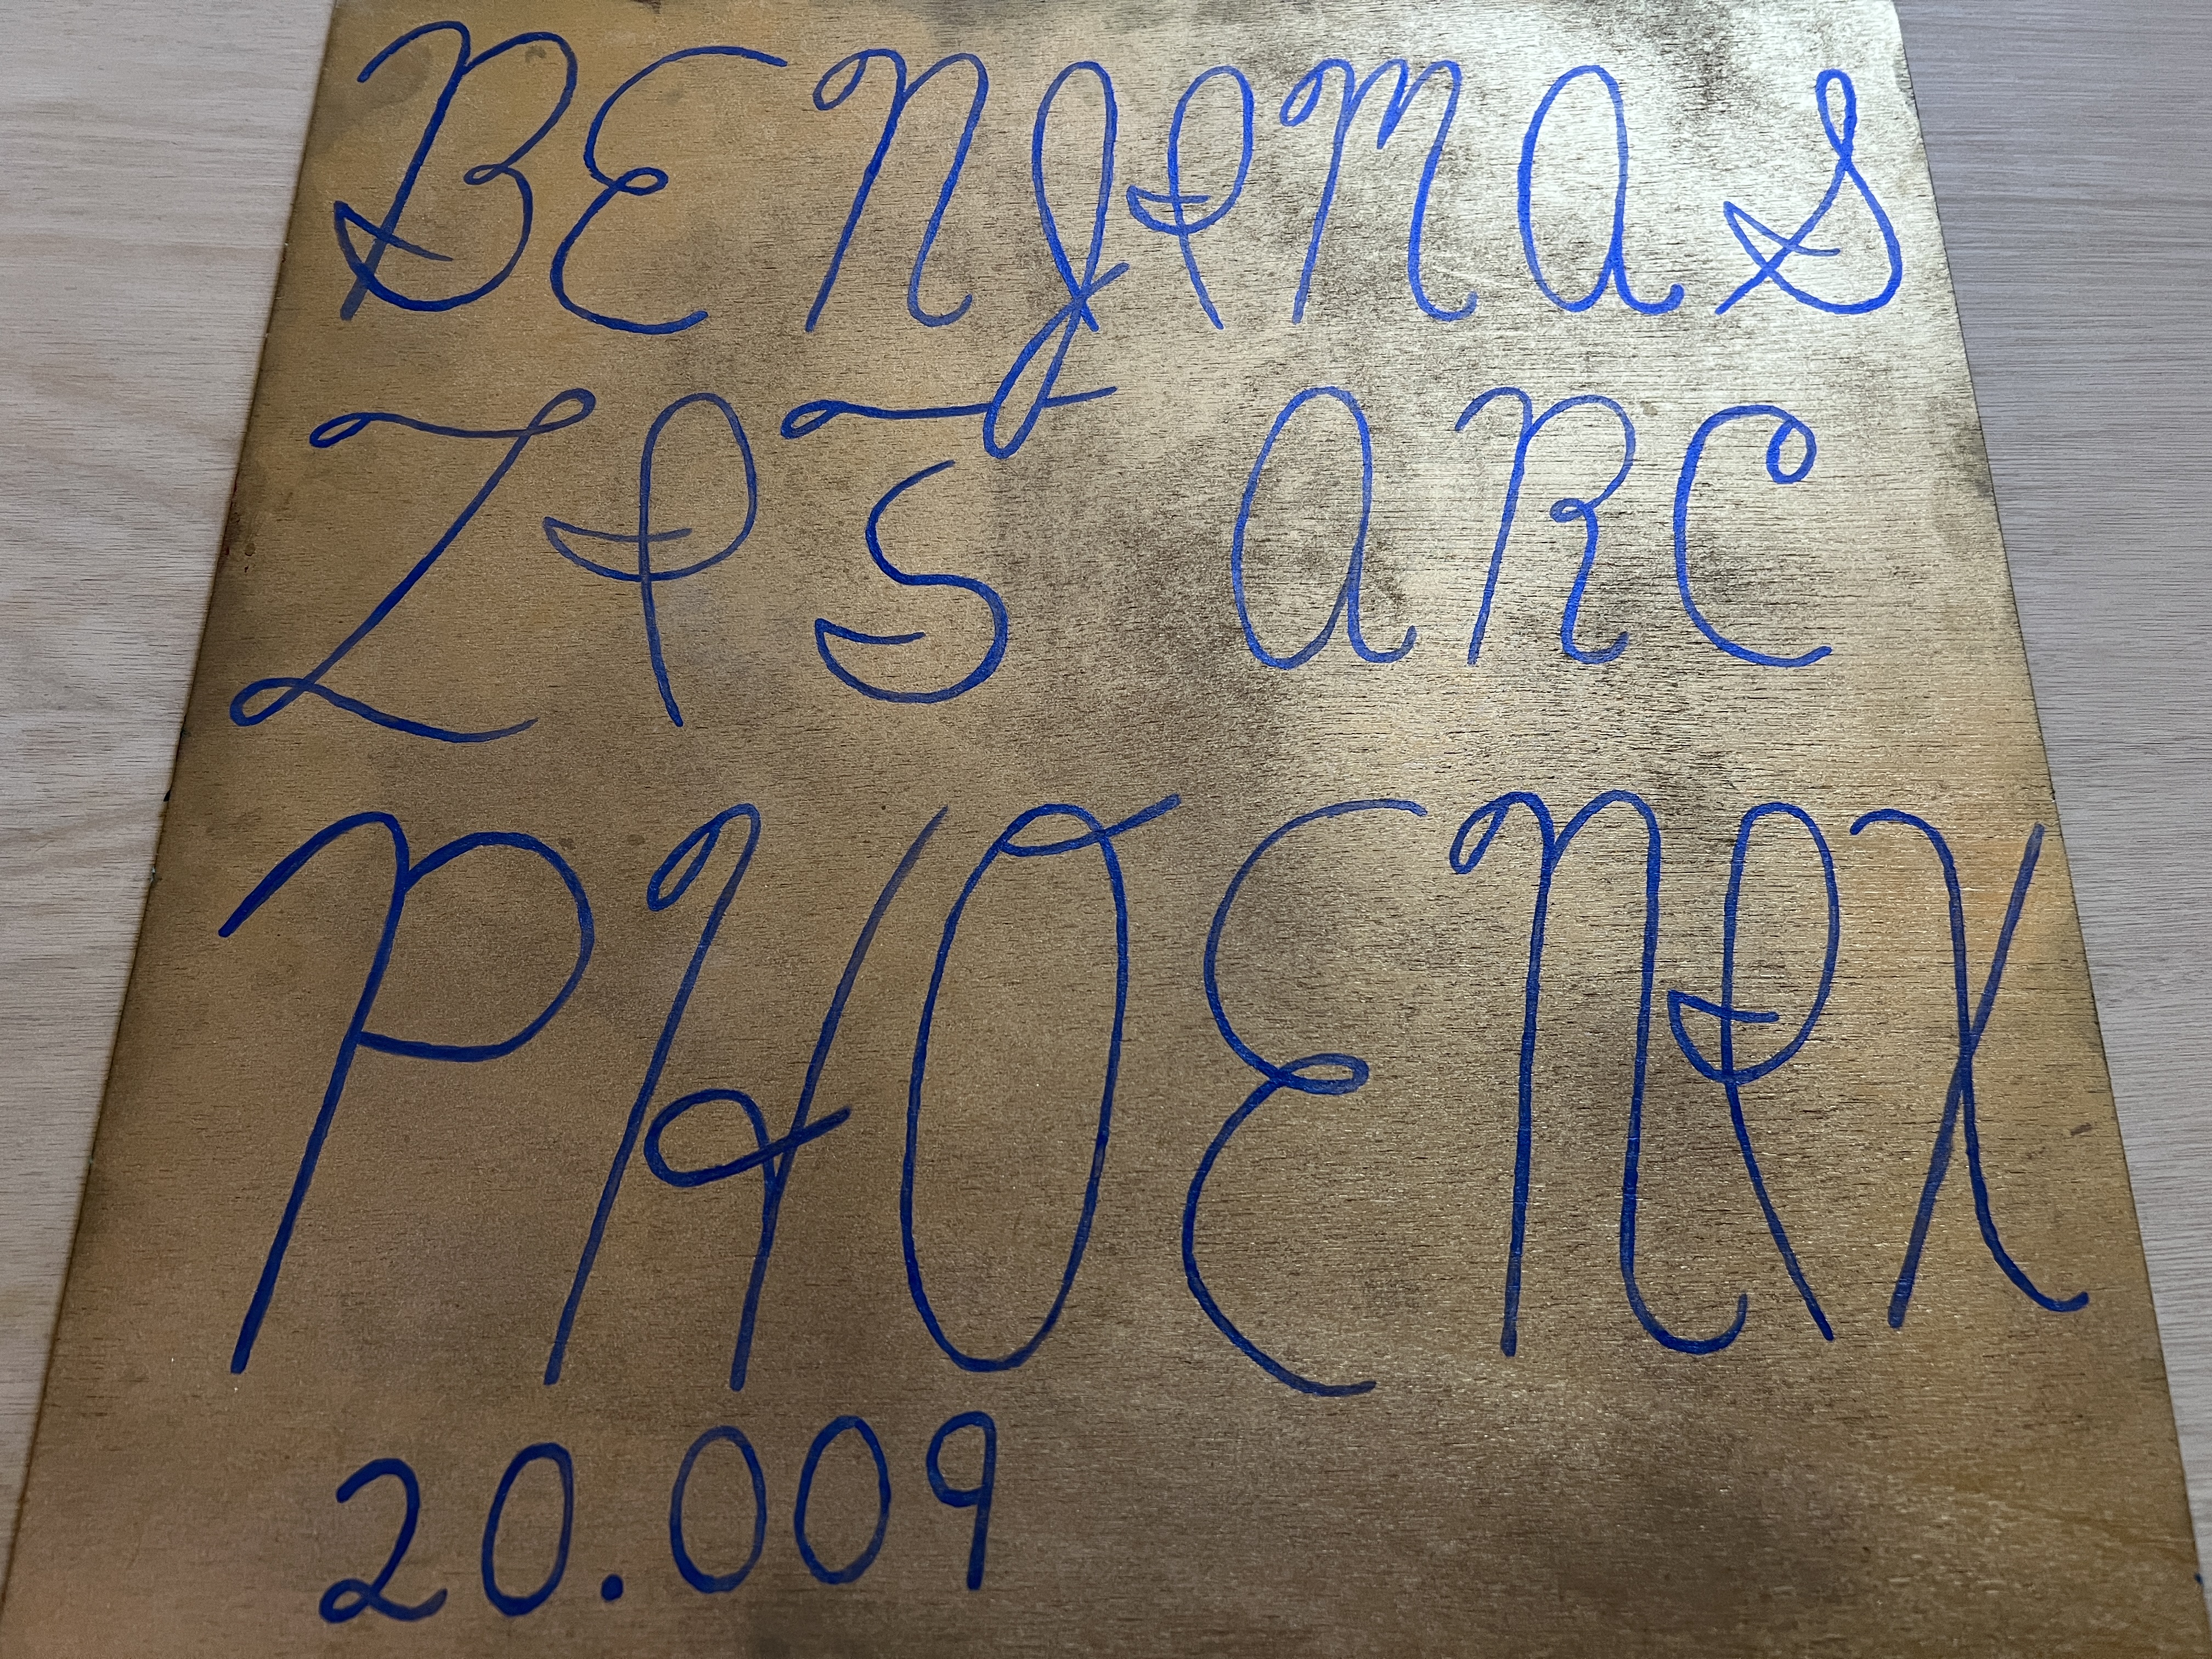 BENJIMAS
ZI5 ARC
PHOENIX
20.009